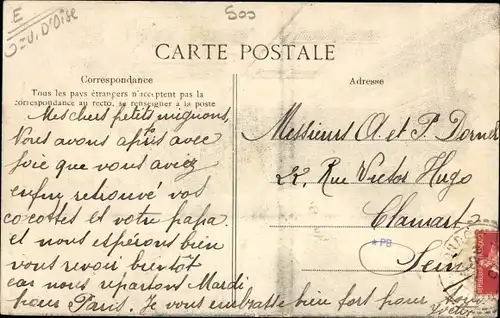 E
S-et-O. D'Oise
500
CARTE POSTALE
Correspondance
Tous les pays étrangers n'acceptent pas la
correspondance au recto, se renseigner à la poste
Adresse
Mes chers petits mignons,
Nous avons appris avec
joie que vous aviez
enfin retrouvé vos
cocottes et votre papa
et nous espérons bien
vous revoir bientôt
car nous repartons Mardi
pour Paris. Je vous embrasse bien fort pour
Messieurs A. et P. Dorner
22, Rue Victor Hugo
Clamart
Seine
*PB